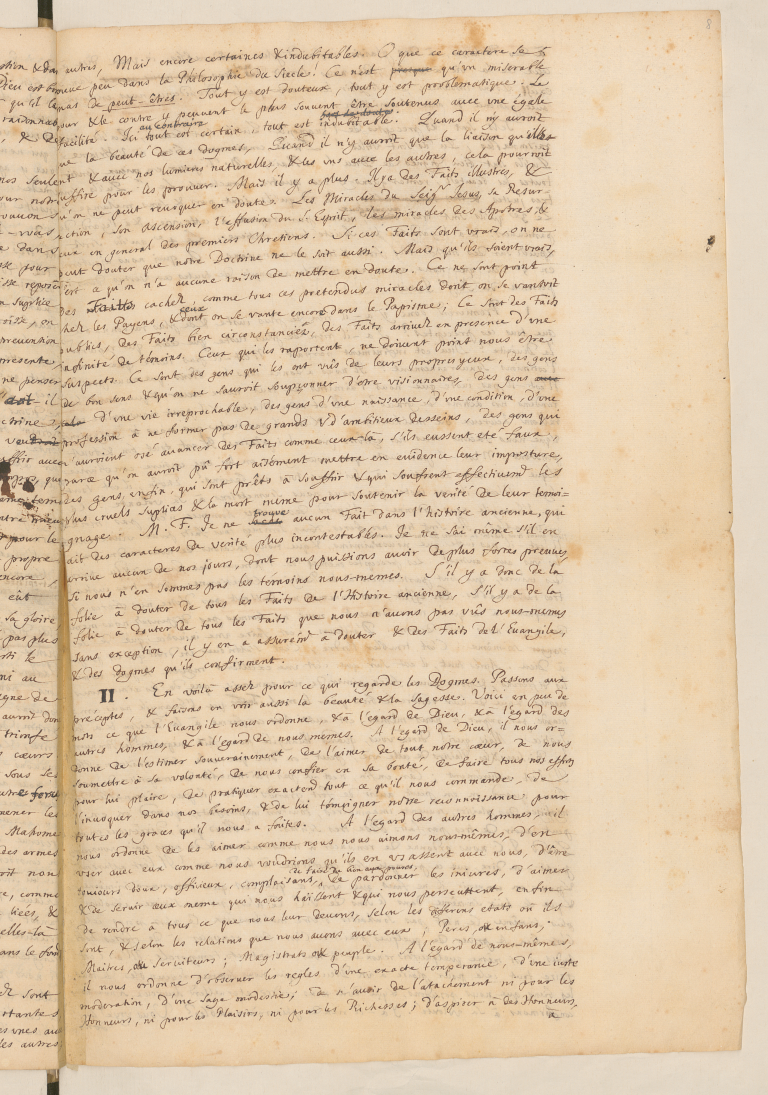 8
autres, Mais encore certaines & indubitables. O que ce caractere se
trouve peu dans la Philosophie du Siecle! Ce n'est presque qu'un miserable
amas de peut-êtres. Tout y est douteux, tout y est problematique. Le
pour & le contre y peuvent le plus souvent être soutenus avec une égale
facilité. Ici au contraire tout est certain, tout est indubitable. Quand il n'y auroit
que la beauté de ces Dogmes, Quand il n'y auroit que la liaison qu'elles
ont & avec nos lumieres naturelles, & les uns avec les autres, cela pourroit
suffire pour les prouver. Mais il y a plus. Il y a des Faits illustres, &
qu'on ne peut revoquer en doute. Les Miracles du Seigr. Jesus, sa Resur-
rection, son ascension, l'effusion du S. Esprit, les miracles des Apotres, &
ceux en general des premiers Chretiens. Si ces Faits sont vrais, on ne
peut douter que notre Doctrine ne le soit aussi. Mais qu'ils soient vrais,
c'est ce qu'on n'a aucune raison de mettre en doute. Ce ne sont point
des Faits cachez, comme tous ces pretendus miracles dont on se vantoit
chez les Payens, & ceux dont on se vante encore dans le Papisme; Ce sont des Faits
publics, des Faits bien circonstanciez, des Faits arrivez en presence d'une
infinité de témoins. Ceux qui les raportent, ne doivent point nous être
suspects. Ce sont des gens qui les ont vûs de leurs propres yeux, des gens
de bon sens & qu'on ne sauroit soupçonner d'etre visionnaires, des gens
d'une vie irreprochable, des gens d'une naissance, d'une condition, d'une
profession à ne former pas de grands & d'ambitieux desseins, des gens qui
n'auroient osé avancer des Faits comme ceux-là, s'ils eussent eté faux,
parce qu'on auroit pû fort aisément mettre en evidence leur imposture,
des gens enfin, qui sont prêts à souffrir & qui souffrent effectivemt. les
plus cruels suplices & la mort meme pour soutenir la verité de leur temoi=
gnage. M. F. Je ne trouve aucun Fait dans l'histoire ancienne, qui
ait des caracteres de verité plus incontestables. Je ne sai même s'il en
arrive aucun de nos jours, dont nous puissions avoir de plus fortes preuves,
si nous n'en sommes pas les temoins nous-memes. S'il y a donc de la
folie à douter de tous les Faits de l'Histoire ancienne, S'il y a de la
folie à douter de tous les Faits que nous n'avons pas vûs nous-memes
sans exception, il y en a assurémt. à douter & des Faits de l'Evangile,
& des Dogmes qu'ils confirment.
II. En voilà assez pour ce qui regarde les Dogmes. Passons aux
préceptes, & faisons en voir aussi la beauté & la sagesse. Voici en peu de
mots ce que l'Evangile nous ordonne, & à l'égard de Dieu, & à l'égard des
autres hommes, & à l'égard de nous memes. A l'égard de Dieu, il nous or=
donne de l'estimer souverainement, de l'aimer de tout notre cœur, de nous
soumettre à sa volonté, de nous confier en sa bonté, de faire tous nos efforts
pour lui plaire, de pratiquer exactemt. tout ce qu'il nous commande, de
l'invoquer dans nos besoins, & de lui témoigner notre reconnoissance pour
toutes les graces qu'il nous a faites. A l'égard des autres hommes, il
nous ordonne de les aimer comme nous nous aimons nous-mêmes, d'en
user avec eux comme nous voudrions qu'ils en usassent avec nous, d'être
toujours doux, officieux, complaisans, de faire du bien aux pauvres, de pardonner les injures, d'aimer
& de servir ceux meme qui nous haïssent & qui nous persecutent, enfin
de rendre à tous ce que nous leur devons, selon les differens etats où ils
sont, & selon les relations que nous avons avec eux; Peres, ou enfans;
Maitres, ou serviteurs; Magistrats ou peuple. A l'égard de nous-mêmes,
il nous ordonne d'observer les regles d'une exacte temperance, d'une juste
moderation, d'une sage modestie; de n'avoir de l'atachement ni pour les
Honneurs, ni pour les Plaisirs, ni pour les Richesses; d'aspirer à des Honneurs,